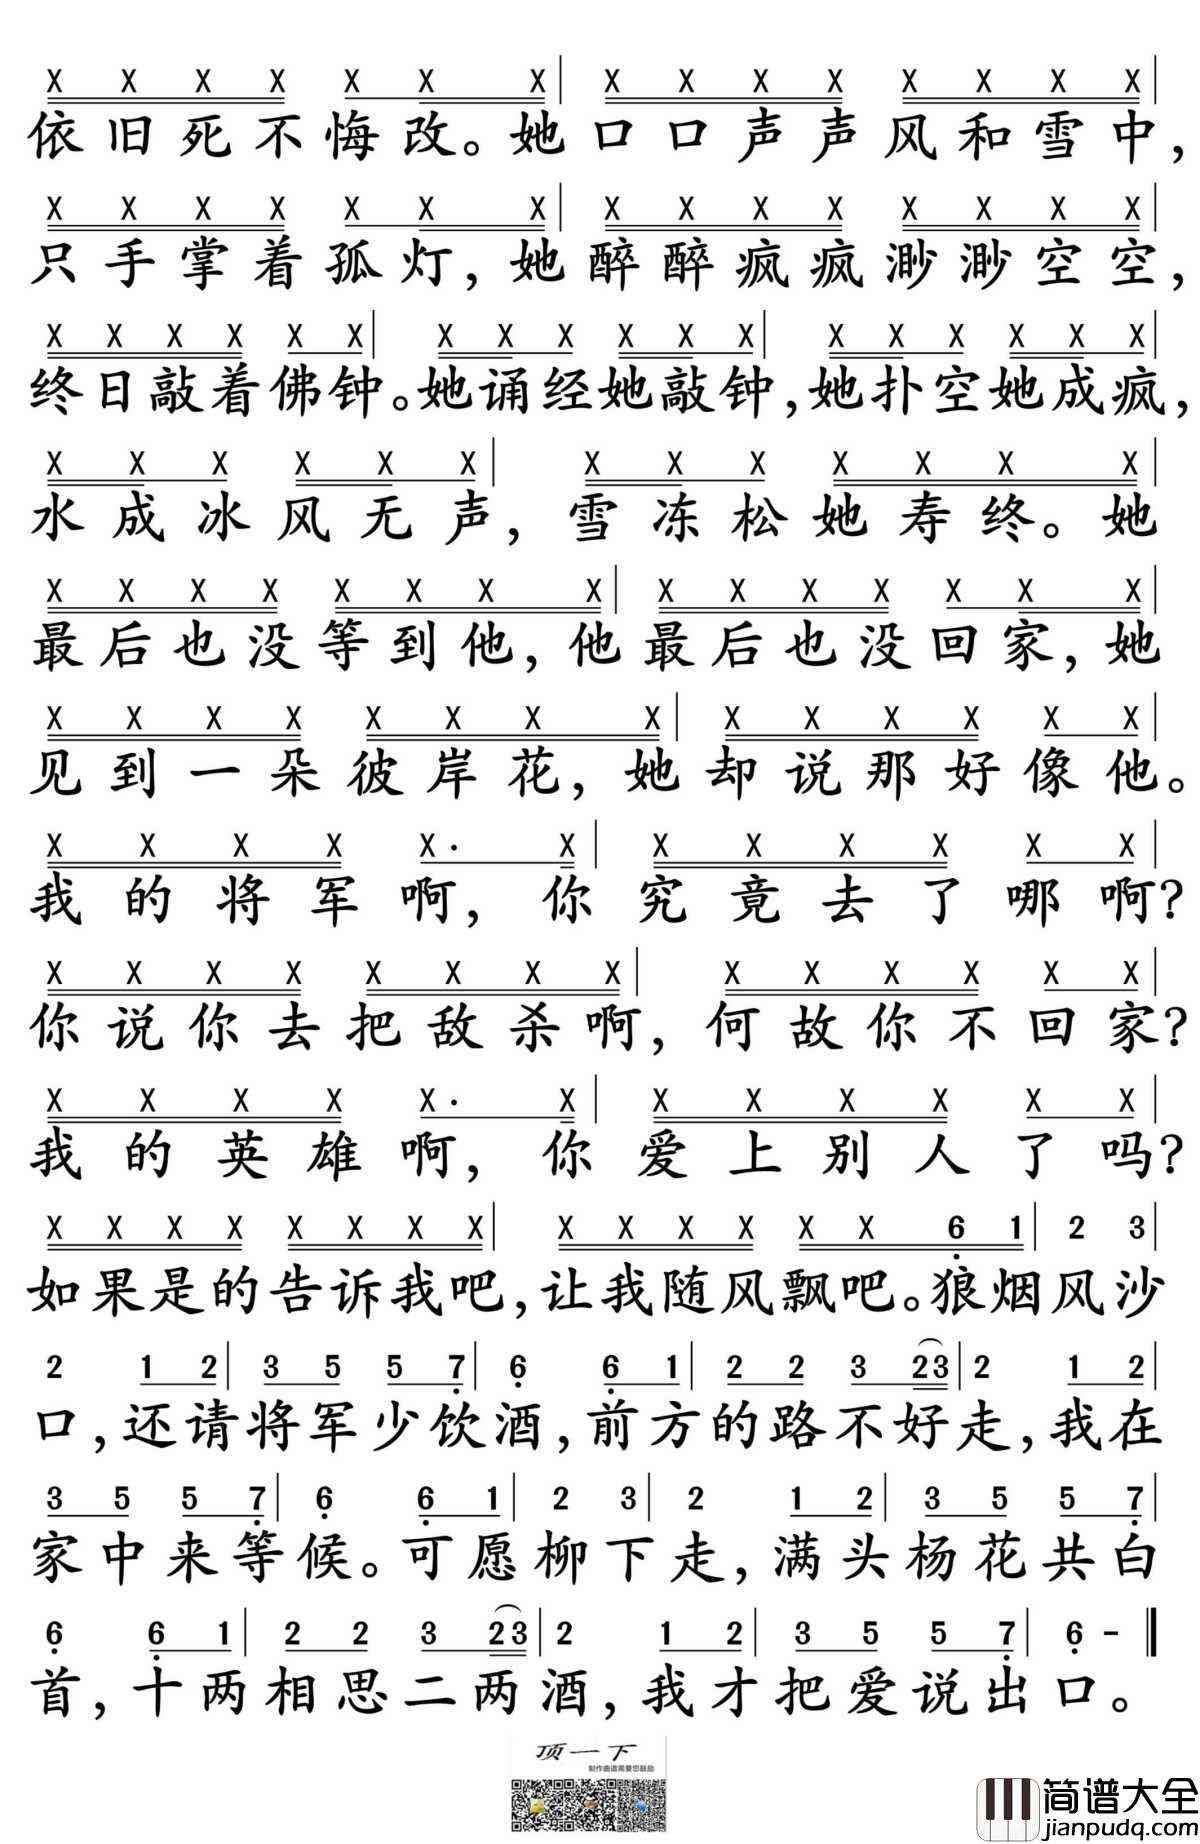 X X X X X X X| X X X X X X X X|
依旧死不悔改。她口口声声风和雪中，
X X X X X X X| X X X X X X X X|
只手掌着孤灯，她醉醉疯疯渺渺空空，
X X X X X X| X X X X X X| X X X X X X|
终日敲着佛钟。她诵经她敲钟，她扑空她成疯，
X X X X X X| X X X X X X X|
水成冰风无声，雪冻松她寿终。她
X X X X X X X X| X X X X X X X|
最后也没等到他，他最后也没回家，她
X X X X X X X X| X X X X X X|
见到一朵彼岸花，她却说那好像他。
X X X X X· X| X X X X X X|
我的将军啊，你究竟去了哪啊？
X X X X X X X X| X X X X X X|
你说你去把敌杀啊，何故你不回家？
X X X X X· X| X X X X X X|
我的英雄啊，你爱上别人了吗？
X X X X X X X X| X X X X X X 6 1| 2 3|
如果是的告诉我吧，让我随风飘吧。狼烟风沙
2 1 2| 3 5 5 7| 6 6 1| 2 2 3 23| 2 1 2|
口，还请将军少饮酒，前方的路不好走，我在
3 5 5 7| 6 6 1| 2 3| 2 1 2| 3 5 5 7|
家中来等候。可愿柳下走，满头杨花共白
6 6 1| 2 2 3 23| 2 1 2| 3 5 5 7| 6 - ‖
首，十两相思二两酒，我才把爱说出口。
顶一下
制作曲谱需要您鼓励
简谱大全
jianpudq.com